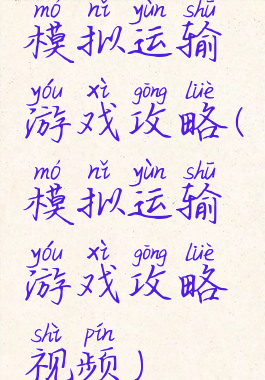 mó nǐ yùn shū
模拟运输
yóu xì gōng lüè
游戏攻略(
mó nǐ yùn shū
模拟运输
yóu xì gōng lüè
游戏攻略
shì pín
视频)